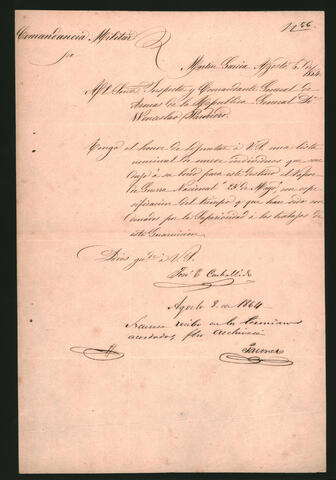 Nº 66.
Comandancia Militar
Martin Garcia Agosto 5 de
1864.
Al Señor Inspector y Comandante General de
Armas de la Republica General Dn
Wenceslao Paunero.
Tengo el honor de adjuntar á V.S. una lista
nominal de nueve individuos que con
dujo á su bordo para este destino el Vapor
de Guerra Nacional "25 de Mayo", con es-
pesificacion del tiempo y que han sido con
denados por la Superioridad á los trabajos de
esta Guarnicion.
Dios gue. á V.S.
José E. Carballido
Agosto 8 de 1864
recibo en los terminos
acordados, fho archivese
Paunero